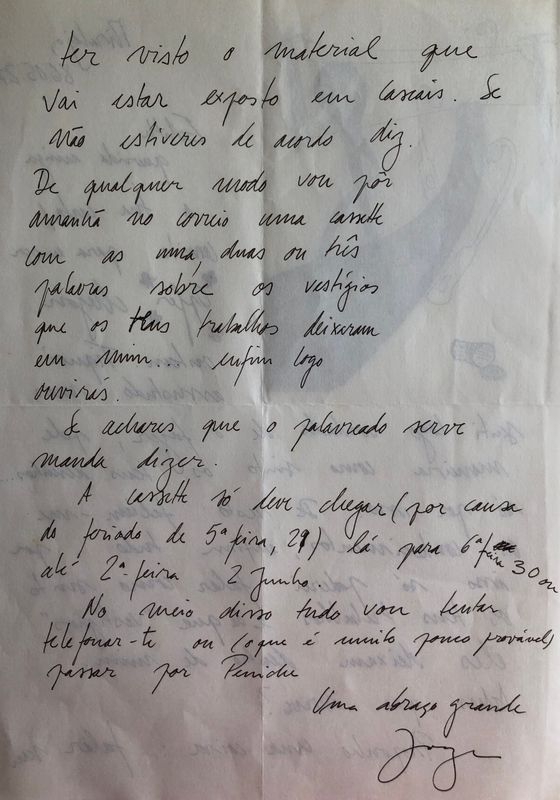 ter visto o material que
vai estar exposto em Cascais. Se
não estiveres de acordo diz.
De qualquer modo vou pôr
amanhã no correio uma cassette
com as uma, duas ou três
palavras sobre os vestígios
que os teus trabalhos deixaram
em mim... enfim logo
ouvirás.
Se achares que o palavreado serve
manda dizer.
A cassette só deve chegar (por causa
do feriado de 5ª feira, 29) lá para 6ª feira 30 ou
até 2ª feira 2 Junho.
No meio disso tudo vou tentar
telefonar-te ou (o que é muito pouco provável)
passar por Peniche
Uma abraço grande
Jorge